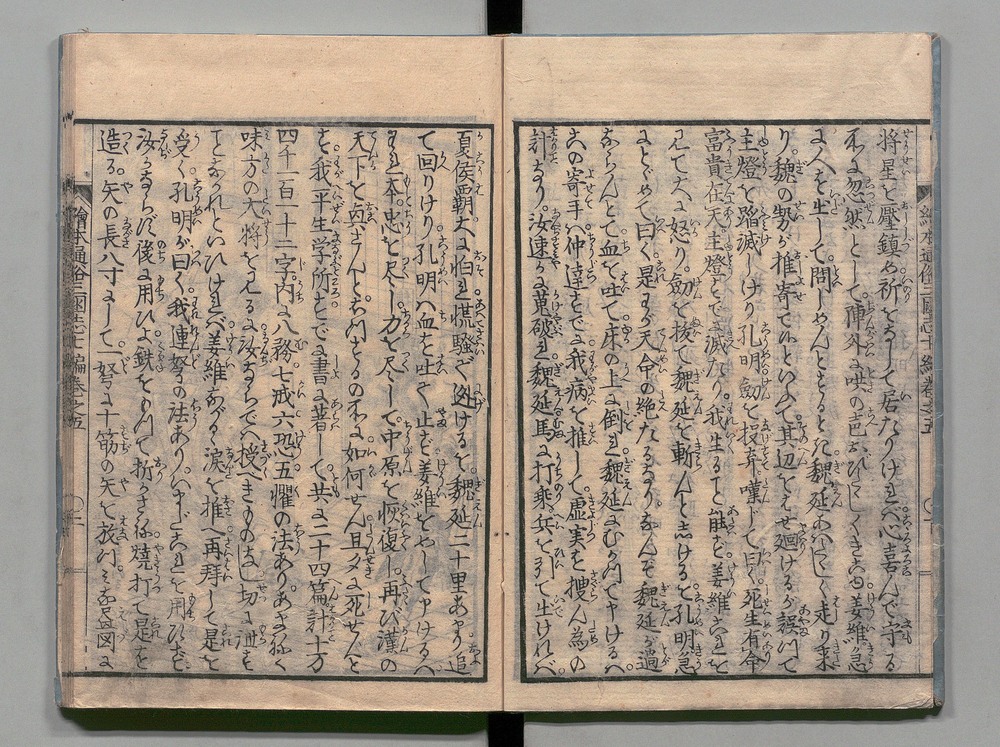 将星を壓鎮め祈をなして居たりければ心喜んで守る
所に忽然として陣外に吶の声おびたゝしくきこゆ姜維急
に人を出して問しめんとするとき魏延あはたゝしく走り来
り魏の勢が推寄てひといふて其辺をとび廻けるが誤つて
主燈を踏滅しけり孔明劔を投弃嘆じて曰く死生有命
富貴在天主燈すでに滅たり我生ること能ずと姜維これを
見て大に怒り劔を抜て魏延を斬んと志けるを孔明急
にとゞめて曰く是わが天命の絶たるなりなんぞ魏延が過
ならんとて血を吐て床の上に倒れ魏延にむかつてやけるは
この寄手は仲達すでに我病を推して虚実を捜ん為の
計なり汝速かに蒐破れ魏延馬に打乗兵を引て出ければ
夏侯覇大に怕れ慌騒ぎ逃けるを魏延二十里あまり追
て回りけり孔明は血を吐く止ず姜維をめして申けるは
われ本忠を尽し力を尽して中原を恢復し再び漢の
天下を興さんとおもへども天の如何せん旦夕に死せんと
を我平生学所すでに書に著して共に二十四篇計十万
四千一百一十二字内に八務七戒六恐五懼の法ありあまねく
味方の大将をみるに汝ならでは授べきものなし切に泄を
ことなかれといひければ姜維なく〳〵涙を推へ再拝して是を
受く孔明が曰く我連弩の法ありいまだこれを用ひず
汝かならず後に用ひよ鉄をもつて折べき你焼打て是を
造る矢の長八寸にして一弩に十筋の矢を放つべし志各図に
繪本通俗三國志七編巻之五